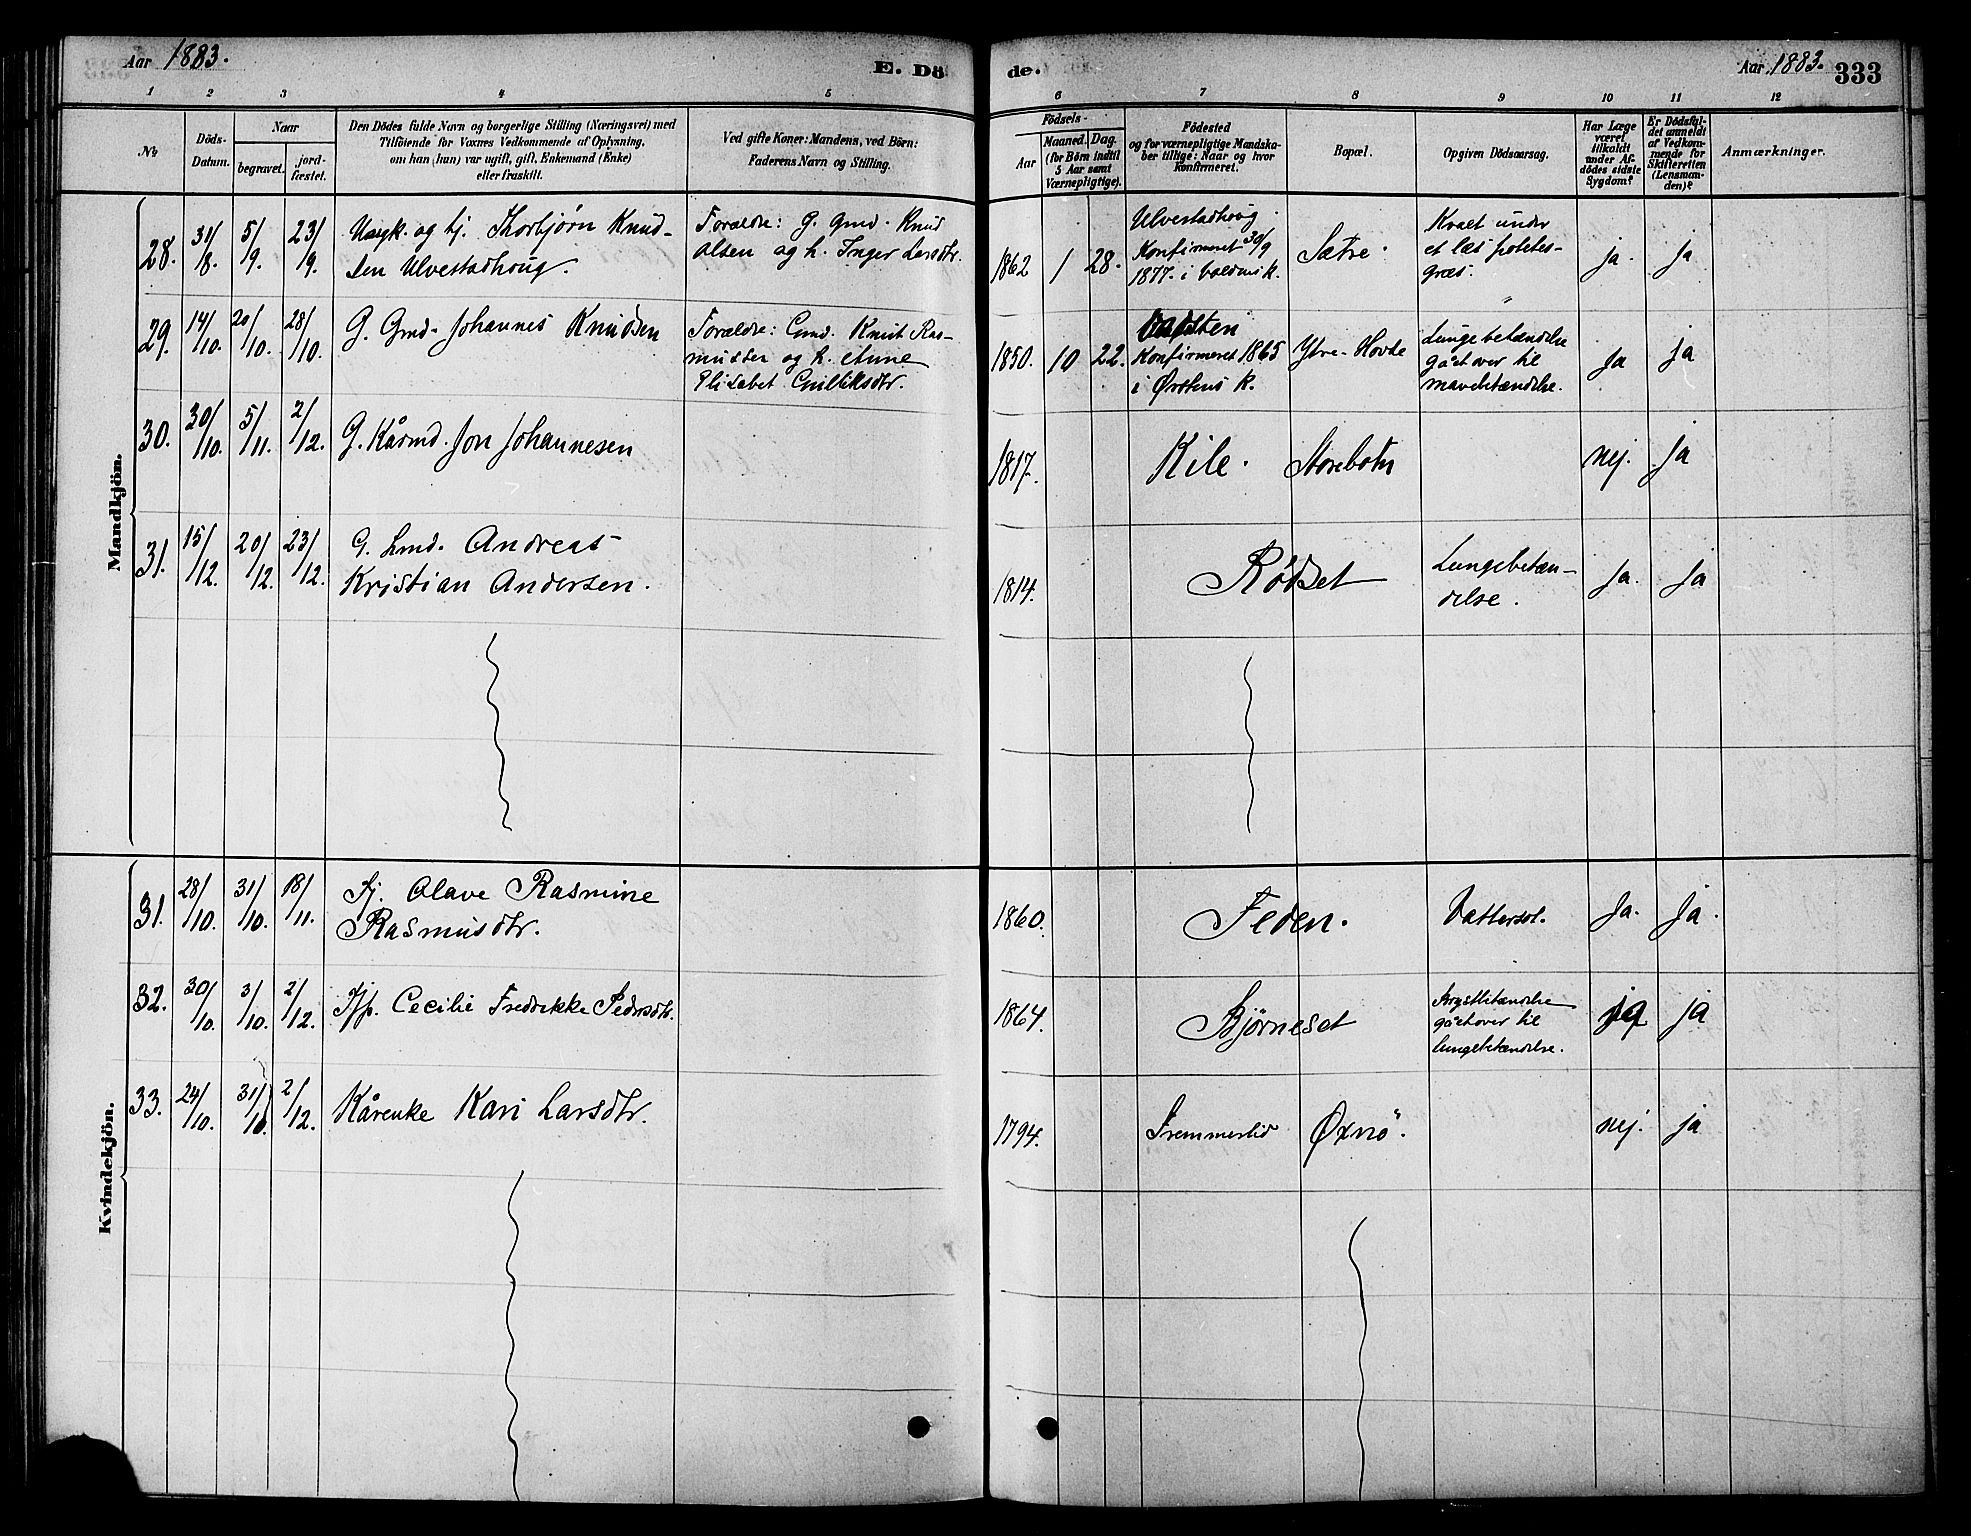 Aar 1883.
E. Dö-
de.
Aar 1883. 333
1 2 3 4 5 6 7 8 9 10 11 12
No
Döds-Datum.
Naar
begravet.
jord-fæstet.
Den Dödes fulde Navn og borgerlige Stilling (Næringsvei) med
Tilföiende for Voxnes Vedkommende af Oplysning,
om han (hun) var ugift, gift, Enkemand (Enke)
eller fraskilt.
Ved gifte Koner: Mandens, ved Börn:
Faderens Navn og Stilling.
Födsels-
Aar
Maaned. Dag.
(for Börn indtil
5 Aar samt
Værnepligtige).
Födested
og for værnepligtige Mandska-
ber tillige: Naar og hvor
konfirmeret.
Bopæl.
Opgiven Dödsaarsag.
Har Læge
været
tilkaldt
under Af-
dödes sidste
Sygdom?
Er Dödsfal-
det anmeldt
af Vedkom-
mende for
Skifteretten
(Lensman-
den)?
Anmærkninger.
Mandkjön.
28. 31/8. 5/9. 23/9. Ungk. og tj. Thorbjørn Knud-
sen Ulvestadhoug.
Forældre: G. Gmd. Knud
Olsen og h. Inger Larsdtr.
1862 1 28.
Ulvestadhoug
Konfirmeret 30/9
1877. i Voldens K.
Sætre.
Kvalt under
et læs potetes-
græs.
ja. ja
29. 14/10. 20/10. 28/10. G. Gmd. Johannes Knudsen
Forældre: Gmd. Knut Ras-
mussen og h. Anne
Elisabet Gulliksdtr.
1850. 10 22.
Konfirmeret 1865
i Ørstens K.
Ytre-Hovde
Lungebetændelse
gået over til
mavebetændelse.
ja ja
30. 20/10. 5/11. 2/12. G. Kårmd. Jon Johannesen
1817. Kile. Storebotn nej. ja
31. 15/12. 20/12. 23/12. G. Lmd. Andreas
Kristian Andersen.
1814. Rødset
Lungebetæn-
delse.
ja. ja
Kvindekjön.
31. 28/10. 31/10. 18/11. Tj. Olave Rasmine
Rasmusdtr.
1860. Feden. Vattersot. ja. ja.
32. 30/10. 3/10. 2/12. Tjp. Cecilie Fredrikke Pedersdtr.
1864. Bjørneset
Brystbetændelse
gået over til
lungebetændelse.
ja ja
33. 24/10. 31/10. 2/12. Kårenke Kari Larsdtr.
1794. Fremmerlid Øxnø. nej. ja